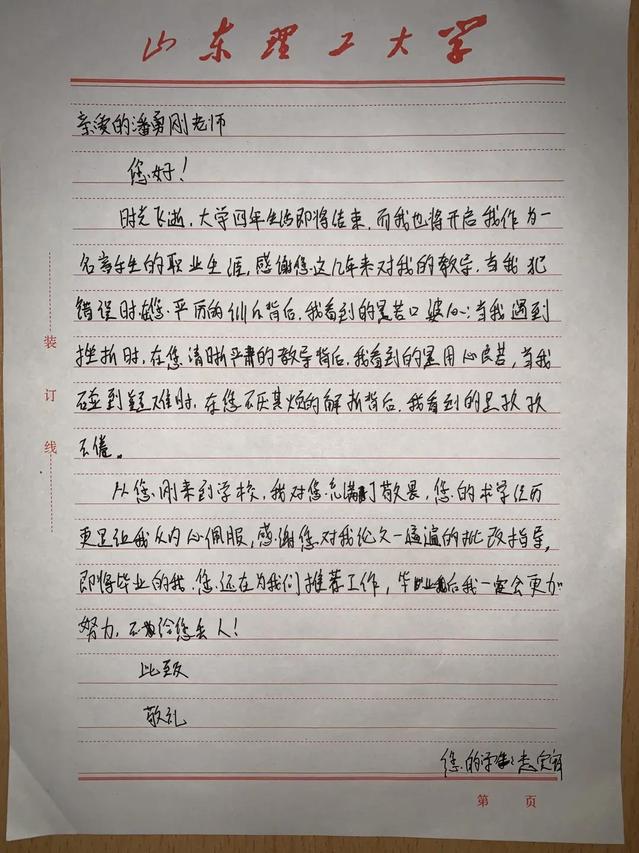 山东理工大学
亲爱的潘勇刚老师
您好！
时光飞逝，大学四年生活即将结束，而我也将开启我作为一
名毕生的职业生涯，感谢您这几年来对我的教导，当我犯
错误时在您严厉的训斥背后，我看到的是苦口婆心；当我遇到
挫折时，在您清晰严肃的教导背后，我看到的是用心良苦，当我
碰到疑难时，在您不厌其烦的解析背后，我看到的是孜孜
不倦。
从您刚来到学校，我对您充满了敬畏，您的求学经历
更是让我从内心佩服，感谢您对我论文一遍遍的批改指导，
即将毕业的我，您还在为我们推荐工作，毕业后我一定会更加
努力，不给您丢人！
此致
敬礼
您的学生：
装
订
线
第 页